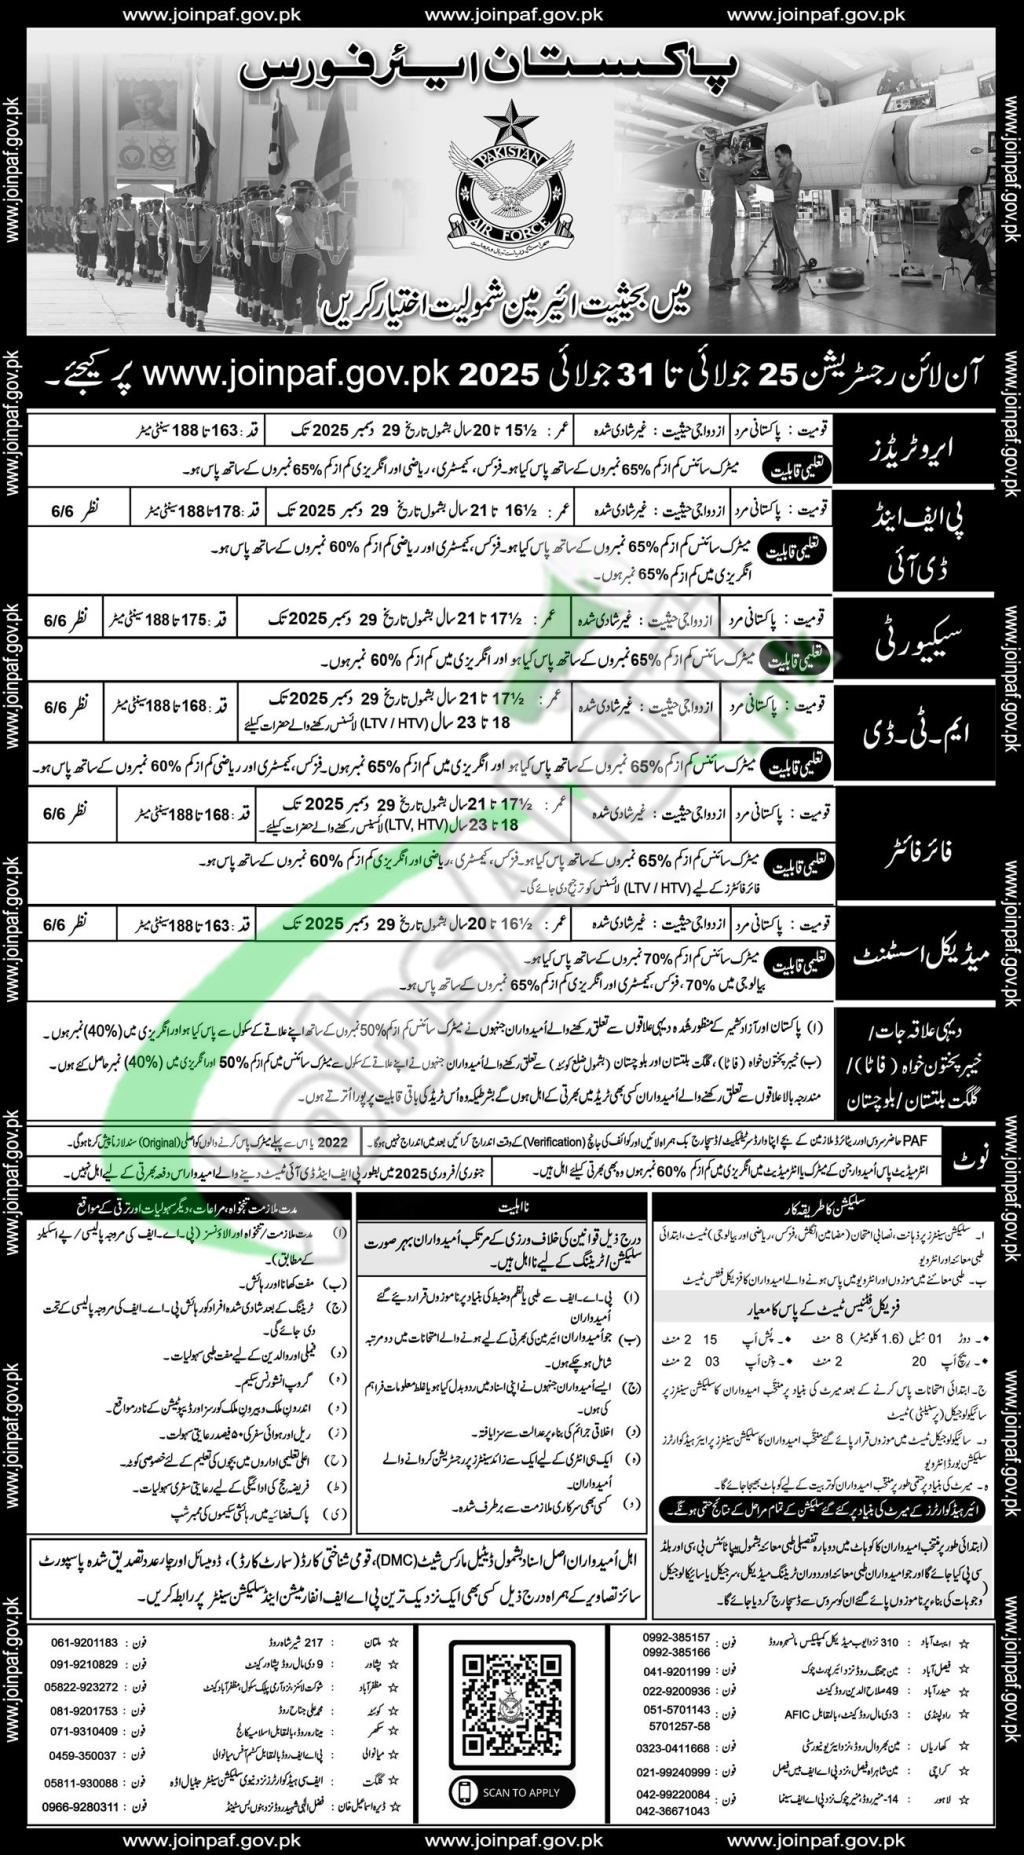 www.joinpaf.gov.pk www.joinpaf.gov.pk www.joinpaf.gov.pk
پاکستان ایئر فورس
PAKISTAN AIR FORCE
میں بحیثیت ائیرمین شمولیت اختیار کریں
آن لائن رجسٹریشن 25 جولائی تا 31 جولائی 2025 www.joinpaf.gov.pk پر کیجئے۔
ایروٹریڈز
قومیت : پاکستانی مرد ازدواجی حیثیت : غیر شادی شدہ عمر : 15½ تا 20 سال بشمول تاریخ 29 دسمبر 2025 تک قد : 163 تا 188 سینٹی میٹر
تعلیمی قابلیت میٹرک سائنس کم از کم 65% نمبروں کے ساتھ پاس کیا ہو۔ فزکس، کیمسٹری، ریاضی اور انگریزی کم از کم 65% نمبروں کے ساتھ پاس ہو۔
پی ایف اینڈ ڈی آئی
قومیت : پاکستانی مرد ازدواجی حیثیت : غیر شادی شدہ عمر : 16½ تا 21 سال بشمول تاریخ 29 دسمبر 2025 تک قد : 178 تا 188 سینٹی میٹر نظر 6/6
تعلیمی قابلیت میٹرک سائنس کم از کم 65% نمبروں کے ساتھ پاس کیا ہو۔ فزکس، کیمسٹری اور ریاضی کم از کم 60% نمبروں کے ساتھ پاس ہو۔
انگریزی میں کم از کم 65% نمبر ہوں۔
سیکیورٹی
قومیت : پاکستانی مرد ازدواجی حیثیت : غیر شادی شدہ عمر : 17½ تا 21 سال بشمول تاریخ 29 دسمبر 2025 تک قد : 175 تا 188 سینٹی میٹر نظر 6/6
تعلیمی قابلیت میٹرک سائنس کم از کم 65% نمبروں کے ساتھ پاس کیا ہو اور انگریزی میں کم از کم 60% نمبر ہوں۔
ایم۔ٹی۔ڈی
قومیت : پاکستانی مرد ازدواجی حیثیت : غیر شادی شدہ عمر : 17½ تا 21 سال بشمول تاریخ 29 دسمبر 2025 تک قد : 168 تا 188 سینٹی میٹر نظر 6/6
18 تا 23 سال (LTV / HTV) لائسنس رکھنے والے حضرات کیلئے
تعلیمی قابلیت میٹرک سائنس کم از کم 65% نمبروں کے ساتھ پاس کیا ہو اور انگریزی میں کم از کم 65% نمبر ہوں۔ فزکس، کیمسٹری اور ریاضی کم از کم 60% نمبروں کے ساتھ پاس ہو۔
فائر فائٹر
قومیت : پاکستانی مرد ازدواجی حیثیت : غیر شادی شدہ عمر : 17½ تا 21 سال بشمول تاریخ 29 دسمبر 2025 تک قد : 168 تا 188 سینٹی میٹر نظر 6/6
18 تا 23 سال (LTV, HTV) لائسنس رکھنے والے حضرات کیلئے۔
تعلیمی قابلیت میٹرک سائنس کم از کم 65% نمبروں کے ساتھ پاس کیا ہو۔ فزکس، کیمسٹری، ریاضی اور انگریزی کم از کم 60% نمبروں کے ساتھ پاس ہو۔
فائر فائٹرز کے لیے (LTV / HTV) لائسنس کو ترجیح دی جائے گی۔
میڈیکل اسسٹنٹ
قومیت : پاکستانی مرد ازدواجی حیثیت : غیر شادی شدہ عمر : 16½ تا 20 سال بشمول تاریخ 29 دسمبر 2025 تک قد : 163 تا 188 سینٹی میٹر نظر 6/6
تعلیمی قابلیت میٹرک سائنس کم از کم 70% نمبروں کے ساتھ پاس کیا ہو۔
بیالوجی میں 70%، فزکس، کیمسٹری اور انگریزی کم از کم 65% نمبروں کے ساتھ پاس ہو۔
دیہی علاقہ جات/ خیبر پختون خواہ (فاٹا)/ گلگت بلتستان/بلوچستان
(ا) پاکستان اور آزاد کشمیر کے منظور شدہ دیہی علاقوں سے تعلق رکھنے والے اُمیدواران جنہوں نے میٹرک سائنس کم از کم 50% نمبروں کے ساتھ اپنے علاقے کے سکول سے پاس کیا ہو اور انگریزی میں (40%) نمبر ہوں۔
(ب) خیبر پختون خواہ (فاٹا)، گلگت بلتستان اور بلوچستان (بشمول ضلع کوئٹہ) سے تعلق رکھنے والے اُمیدواران جنہوں نے اپنے علاقے کے سکول سے میٹرک سائنس میں کم از کم 50% اور انگریزی میں (40%) نمبر حاصل کئے ہوں۔
مندرجہ بالا علاقوں سے تعلق رکھنے والے اُمیدواران کسی بھی ٹریڈ میں بھرتی کے اہل ہوں گے بشرطیکہ وہ اس ٹریڈ کی باقی قابلیت پر پورا اُترتے ہوں۔
نوٹ
PAF حاضر سروس اور ریٹائرڈ ملازمین کے بچے اپنا وارڈ سرٹیفکیٹ/ڈسچارج بک ہمراہ لائیں اور کوائف کی جانچ (Verification) کے وقت اندراج کرائیں بعد میں اندراج نہیں ہوگا۔
2022 یا اس سے پہلے میٹرک پاس کرنے والوں کو اصلی (Original) سند لازماً پیش کرنا ہوگی۔
انٹرمیڈیٹ پاس اُمیدوار جن کے میٹرک یا انٹرمیڈیٹ میں انگریزی میں کم از کم 60% نمبر ہوں وہ بھی بھرتی کیلئے اہل ہیں۔
جنوری/فروری 2025 میں بطور پی ایف اینڈ ڈی آئی ٹیسٹ دینے والے امیدوار اس دفعہ بھرتی کے لیے اہل نہیں۔
سلیکشن کا طریقہ کار
ا۔ سلیکشن سینٹرز پر ذہانت، نصابی امتحان (مضامین انگلش، فزکس، ریاضی اور بیالوجی) ٹیسٹ، ابتدائی طبی معائنہ اور انٹرویو
ب۔ طبی معائنے میں موزوں اور انٹرویو میں پاس ہونے والے امیدواران کا فزیکل فٹنس ٹیسٹ
فزیکل فٹنیس ٹیسٹ کے پاس کا معیار
• دوڑ 01 میل (1.6 کلومیٹر) 8 منٹ • پُش اَپ 15 2 منٹ
• ریچ اَپ 20 2 منٹ • چن اَپ 03 2 منٹ
ج۔ ابتدائی امتحانات پاس کرنے کے بعد میرٹ کی بنیاد پر منتخب امیدواران کا سلیکشن سینٹرز پر سائیکولوجیکل (پرسنیلٹی) ٹیسٹ
د۔ سائیکولوجیکل ٹیسٹ میں موزوں قرار پائے گئے منتخب امیدواران کا سلیکشن سینٹرز پر ایئر ہیڈ کوارٹرز سلیکشن بورڈ انٹرویو
ہ۔ میرٹ کی بنیاد پر حتمی طور پر منتخب امیدواران کو تربیت کے لیے کوہاٹ بھیجا جائے گا۔
ائیر ہیڈ کوارٹرز کے میرٹ کی بنیاد پر کئے گئے سلیکشن کے تمام مراحل کے نتائج حتمی ہونگے۔
(ابتدائی طور پر منتخب امیدواران کا کوہاٹ میں دوبارہ تفصیلی طبی معائنہ بشمول ہیپاٹائٹس بی سی اور بلڈ سی پی کیا جائے گا اور جو امیدواران طبی معائنہ اور دوران ٹریننگ میڈیکل، سرجیکل یا سائیکالوجیکل وجوہات کی بناء پر ناموزوں پائے گئے ان کو سروس سے ڈسچارج کر دیا جائے گا۔)
نااہلیت
درج ذیل قوانین کی خلاف ورزی کے مرتکب اُمیدواران بہر صورت سلیکشن/ٹریننگ کے لیے نااہل ہیں۔
(ا) پی۔اے۔ایف سے طبی یا نظم و ضبط کی بنیاد پر ناموزوں قرار دیے گئے اُمیدواران
(ب) جو اُمیدواران ائیرمین کی بھرتی کے لیے ہونے والے امتحانات میں دو مرتبہ شامل ہو چکے ہوں۔
(ج) ایسے اُمیدواران جنہوں نے اپنی اسناد میں ردوبدل کیا ہو یا غلط معلومات فراہم کی ہوں۔
(د) اخلاقی جرائم کی بناء پر عدالت سے سزایافتہ۔
(ہ) ایک ہی انٹری کے لیے ایک سے زائد سینٹرز پر رجسٹریشن کروانے والے امیدواران۔
(و) کسی بھی سرکاری ملازمت سے برطرف شدہ۔
مدت ملازمت، تنخواہ، مراعات، دیگر سہولیات اور ترقی کے مواقع
(ا) مدت ملازمت/تنخواہ اور الاؤنسز (پی۔اے۔ایف کی مروجہ پالیسی/پے اسکیلز کے مطابق)۔
(ب) مفت کھانا اور رہائش۔
(ج) ٹریننگ کے بعد شادی شدہ افراد کو رہائش پی۔اے۔ایف کی مروجہ پالیسی کے تحت دی جائے گی۔
(د) فیملی اور والدین کے لیے مفت طبی سہولیات۔
(ہ) گروپ انشورنس سکیم۔
(و) اندرونِ ملک و بیرونِ ملک کورسز اور ڈیپوٹیشن کے نادر مواقع۔
(ز) ریل اور ہوائی سفر کی ۵۰ فیصد رعایتی سہولت۔
(ح) اعلیٰ تعلیمی اداروں میں بچوں کی تعلیم کے لئے خصوصی کوٹہ۔
(ط) فریضہ حج کی ادائیگی کے لیے رعایتی سفری سہولیات۔
(ی) پاک فضائیہ میں رہائشی سکیموں کی ممبر شپ
اہل اُمیدواران اصل اسناد بشمول ڈیٹیل مارکس شیٹ (DMC)، قومی شناختی کارڈ (سمارٹ کارڈ)، ڈومیسائل اور چار عدد تصدیق شدہ پاسپورٹ سائز تصاویر کے ہمراہ درج ذیل کسی بھی ایک نزدیک ترین پی اے ایف انفارمیشن اینڈ سلیکشن سینٹر پر رابطہ کریں۔
☆ ایبٹ آباد : 310 نزد ایوب میڈیکل کمپلیکس مانسہرہ روڈ فون : 0992-385157 0992-385166
☆ فیصل آباد : مین جھنگ روڈ نزد ائیرپورٹ چوک فون : 041-9201199
☆ حیدرآباد : 49 صلاح الدین روڈ کینٹ فون : 022-9200936
☆ راولپنڈی : 3 دی مال روڈ کینٹ، بالمقابل AFIC فون : 051-5701143 5701257-58
☆ کھاریاں : مین بھروال روڈ، نزد ایئر یونیورسٹی فون : 0323-0411668
☆ کراچی : مین شاہراہ فیصل، نزد پی اے ایف بیس فیصل فون : 021-99240999
☆ لاہور : 14-منیر روڈ، منیر چوک نزد پی اے ایف سینما فون : 042-99220084 042-36671043
SCAN TO APPLY
☆ ملتان : 217 شیر شاہ روڈ فون : 061-9201183
☆ پشاور : 9 دی مال روڈ پشاور کینٹ فون : 091-9210829
☆ مظفرآباد : شوکت لائنز، نزد آرمی پبلک سکول، مظفرآباد کینٹ فون : 05822-923272
☆ کوئٹہ : محمد علی جناح روڈ فون : 081-9201753
☆ سکھر : مینارہ روڈ، بالمقابل اسلامیہ کالج فون : 071-9310409
☆ میانوالی : پی اے ایف روڈ بالمقابل کسٹم آفس میانوالی فون : 0459-350037
☆ گلگت : ایف سی ہیڈ کوارٹرز نزد نیوی سلیکشن سینٹر جٹیال اڈہ فون : 05811-930088
☆ ڈیرہ اسماعیل خان : فضل الٰہی شہید روڈ نزد بنوں بس سٹینڈ فون : 0966-9280311
www.joinpaf.gov.pk www.joinpaf.gov.pk www.joinpaf.gov.pk